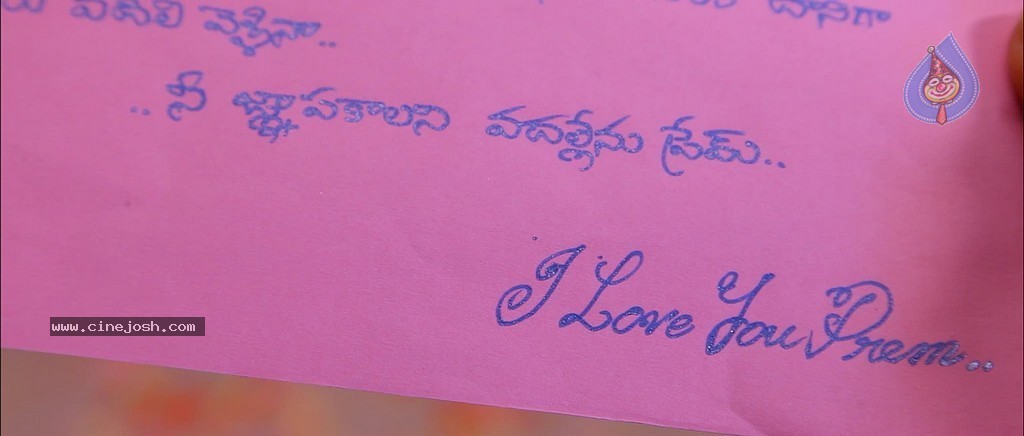 వదిలి వెళ్ళినా..
దానిగా
.. నీ జ్ఞాపకాలని వదల్లేను ప్రేమ్..
I Love You Prem..
www.cinejosh.com